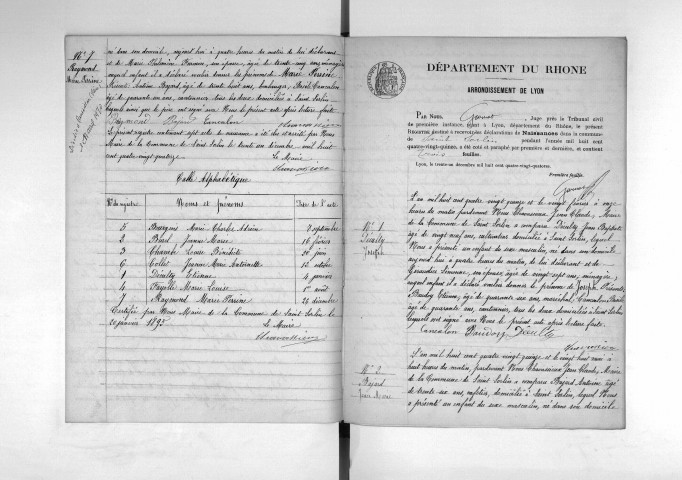 N° 7
Raymond
Marie Perrine
né dans son domicile, aujourd'hui à quatre heures du matin de lui déclarant
et de Marie Philomène son épouse, âgée de trente cinq ans, ménagère
auquel enfant il a déclaré vouloir donner les prénoms de Marie Perrine
Présents Antoine Bajard, âgé de trente huit ans, boulanger, Benoît Cancalon
âgé de quarante un ans, cantonnier tous les deux domiciliés à Saint Sorlin
lesquels ainsi que le père ont signé avec Nous le présent acte après lecture faite
Raymond Bajard Cancalon
Chavassieux
Le présent registre contenant sept actes de naissance a été clos et arrêté par Nous
Maire de la Commune de Saint Sorlin le trente un décembre mil huit
cent quatre vingt quatorze
Le Maire
Chavassieux
Table Alphabétique
N° du registre Noms et prénoms Date de l'acte
5 Bourgeus Marie Charles Adrien septembre
2 Jeanne Marie 16 février
3 Louise Bénédicte juin
6 Collet Jeanne Marie Antoinette 12 octobre
1 Dieulty Etienne 4 janvier
4 Fayolle Marie Louise 1er août
7 Raymond Marie Perrine 24 décembre
Certifiée par Nous Maire de la Commune de Saint Sorlin le
20 janvier 1895
Le Maire
Chavassieux
DÉPARTEMENT DU RHONE
ARRONDISSEMENT DE LYON
PAR NOUS, Juge près le Tribunal civil
de première instance, séant à Lyon, département du Rhône, le présent
REGISTRE destiné à recevoir les déclarations de Naissances dans la commune
de Saint Sorlin pendant l'année mil huit cent
quatre-vingt-quinze, a été coté et paraphé par première et dernière, et contient
trois feuilles.
Lyon, le trente-un décembre mil huit cent quatre-vingt-quatorze.
Première feuille.
N° 1
Dieulty
Joseph
L'an mil huit cent quatre vingt quinze et le vingt février à onze
heures du matin pardevant Nous Chavassieux Jean Claude, Maire
de la Commune de Saint Sorlin a comparu Dieulty Jean Baptiste
âgé de vingt neuf ans, cultivateur domicilié à Saint Sorlin, lequel
Nous a présenté un enfant du sexe masculin, né dans son domicile
aujourd'hui à quatre heures du matin, de lui déclarant et de
son épouse, âgée de vingt sept ans, ménagère,
auquel enfant il a déclaré vouloir donner le prénom de Joseph Présents
Etienne, âgé de quarante six ans, maréchal, Cancalon Benoît
âgé de quarante ans, cantonnier, tous les deux domiciliés à Saint Sorlin
lesquels ont signé avec Nous le présent acte après lecture faite
Cancalon Dieulty
Chavassieux
N° 2
Bajard
Jean Marie
L'an mil huit cent quatre vingt quinze et le vingt huit mars à
huit heures du matin, pardevant Nous Chavassieux Jean Claude, Maire
de la Commune de Saint Sorlin a comparu Bajard Antoine âgé
de trente six ans, cafetier, domicilié à Saint Sorlin, lequel Nous
a présenté un enfant du sexe masculin, né dans son domicile